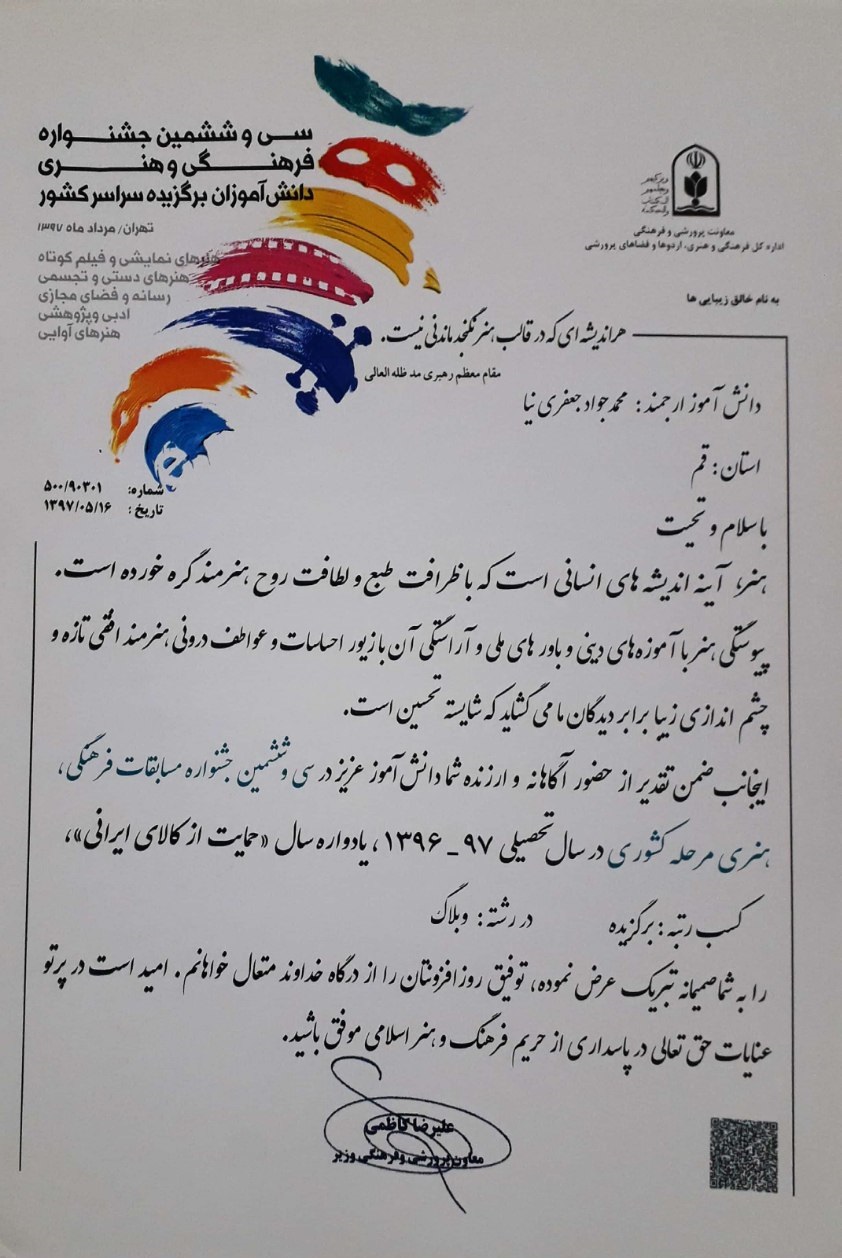 سی و ششمین جشنواره
فرهنگی و هنری
دانش‌آموزان برگزیده سراسر کشور
تهران/ مرداد ماه ۱۳۹۷
هنرهای نمایشی و فیلم کوتاه
هنرهای دستی و تجسمی
رسانه و فضای مجازی
ادبی و پژوهشی
هنرهای آوایی
معاونت پرورشی و فرهنگی
اداره کل فرهنگی و هنری، اردوها و فضاهای پرورشی
به نام خالق زیبایی ها
هر اندیشه ای که در قالب هنر نگنجد ماندنی نیست.
مقام معظم رهبری مد ظله العالی
دانش آموز ارجمند: محمدجواد جعفری نیا
استان: قم
شماره: ۵۰۰/۹۰۳۰۱
تاریخ: ۱۳۹۷/۰۵/۱۶
با سلام و تحیت
هنر، آینه اندیشه های انسانی است که با ظرافت طبع و لطافت روح هنرمند گره خورده است.
پیوستگی هنر با آموزه های دینی و باور های ملی و آراستگی آن با زیور احساسات و عواطف درونی هنرمند افقی تازه و
چشم اندازی زیبا برابر دیدگان ما می گشاید که شایسته تحسین است.
اینجانب ضمن تقدیر از حضور آگاهانه و ارزنده شما دانش آموز عزیز در سی و ششمین جشنواره مسابقات فرهنگی،
هنری مرحله کشوری در سال تحصیلی ۹۷ ـ ۱۳۹۶، یادواره سال «حمایت از کالای ایرانی»،
کسب رتبه: برگزیده در رشته: وبلاگ
را به شما صمیمانه تبریک عرض نموده، توفیق روز افزونتان را از درگاه خداوند متعال خواهانم. امید است در پرتو
عنایات حق تعالی در پاسداری از حریم فرهنگ و هنر اسلامی موفق باشید.
علیرضا کاظمی
معاون پرورشی و فرهنگی وزیر